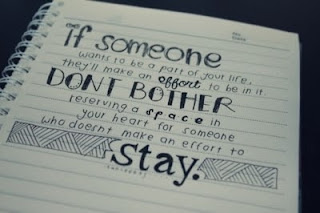 if someone
wants to be a part of your life,
they'll make an effort to be in it.
DON'T BOTHER
reserving a space in
your heart for someone
who doesn't make an effort to
stay.